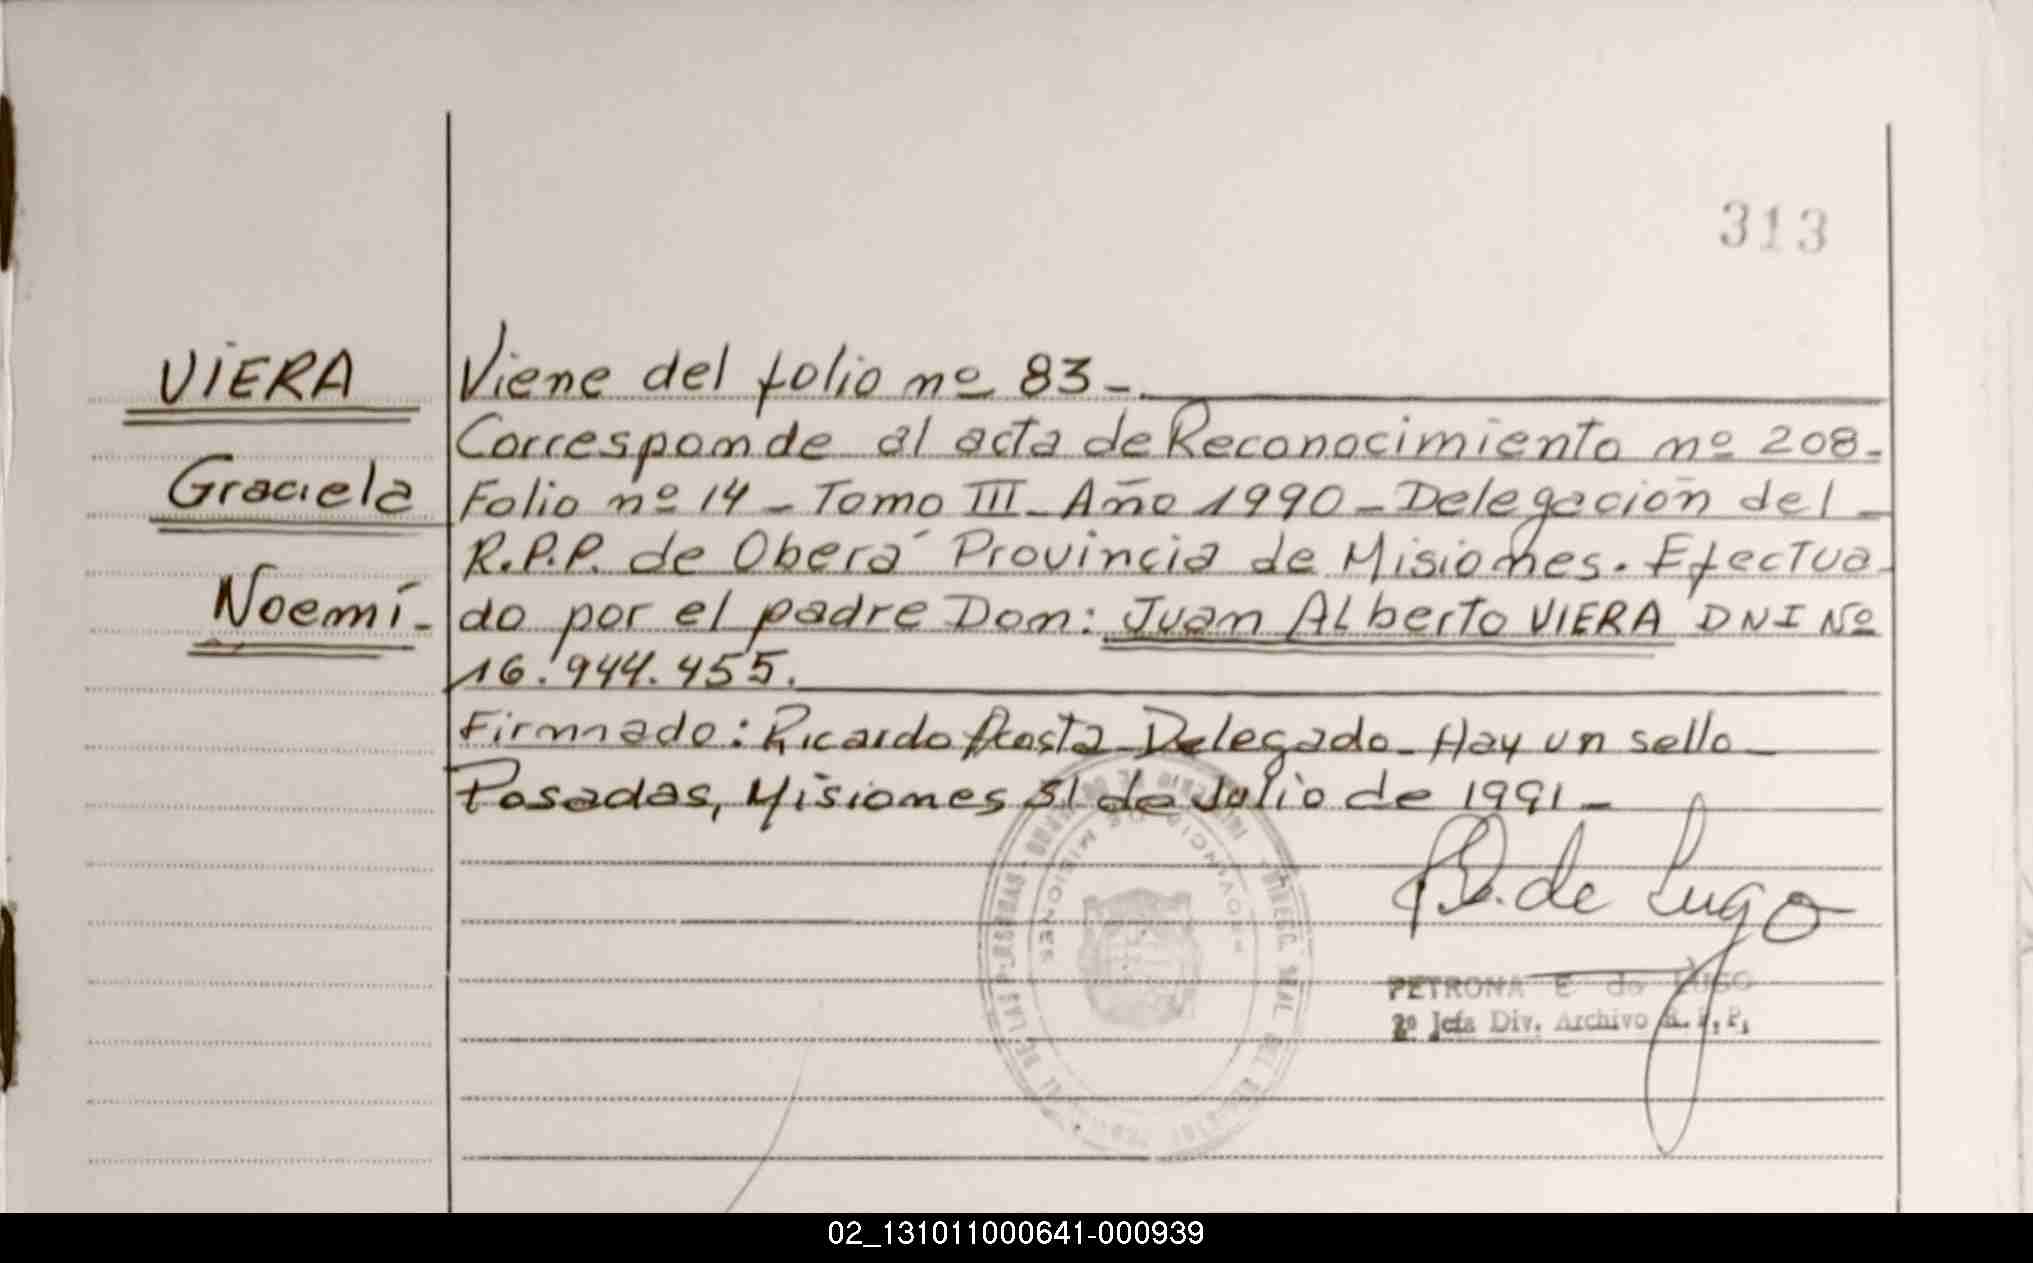 313
VIERA
Graciela
Noemí-
Viene del folio nº 83-
Corresponde al acta de Reconocimiento nº 208-
Folio nº 14 - Tomo III - Año 1990 - Delegación del -
R.P.P. de Oberá Provincia de Misiones. Efectua-
do por el padre Don: Juan Alberto VIERA DNI Nº
16.944.455.
Firmnado: Ricardo Acosta Delegado - Hay un sello -
Posadas, Misiones 31 de Julio de 1991 -
de Lugo
PETRONA E de LUGO
2º Jefa Div. Archivo R. P. P.
PROVINCIA DE MISIONES
02_131011000641-000939